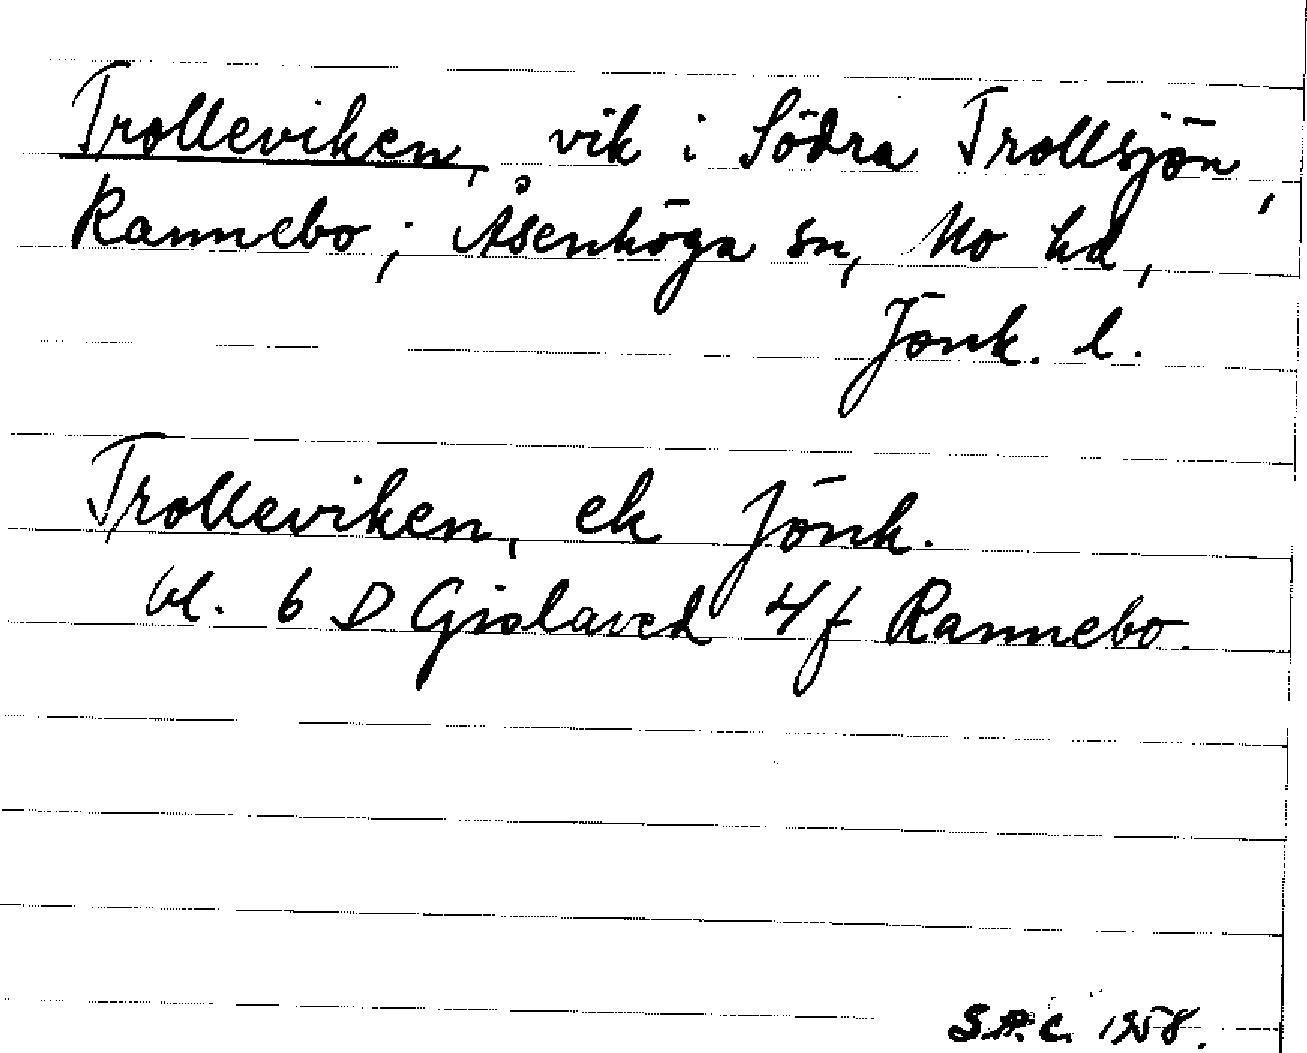 Trolleviken, vik i Södra Trollsjön,
Rannebo; Åsenhöga sn, Mo hd,
Jönk. l.
Trolleviken, ek Jönk.
bl. 6 D Gislaved 4f Rannebo.
S.A.C. 1958.